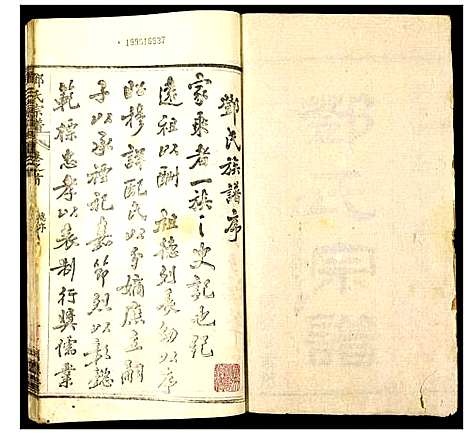 199516537
鄧氏族譜序
家乘者一族之史記也記
遠祖以酬祖德列長幼以序
昭穆詳配氏以分嫡庶立嗣
子以承禋祀嘉節烈以彰懿
範標忠孝以表制行奬儒業
鄧氏宗譜